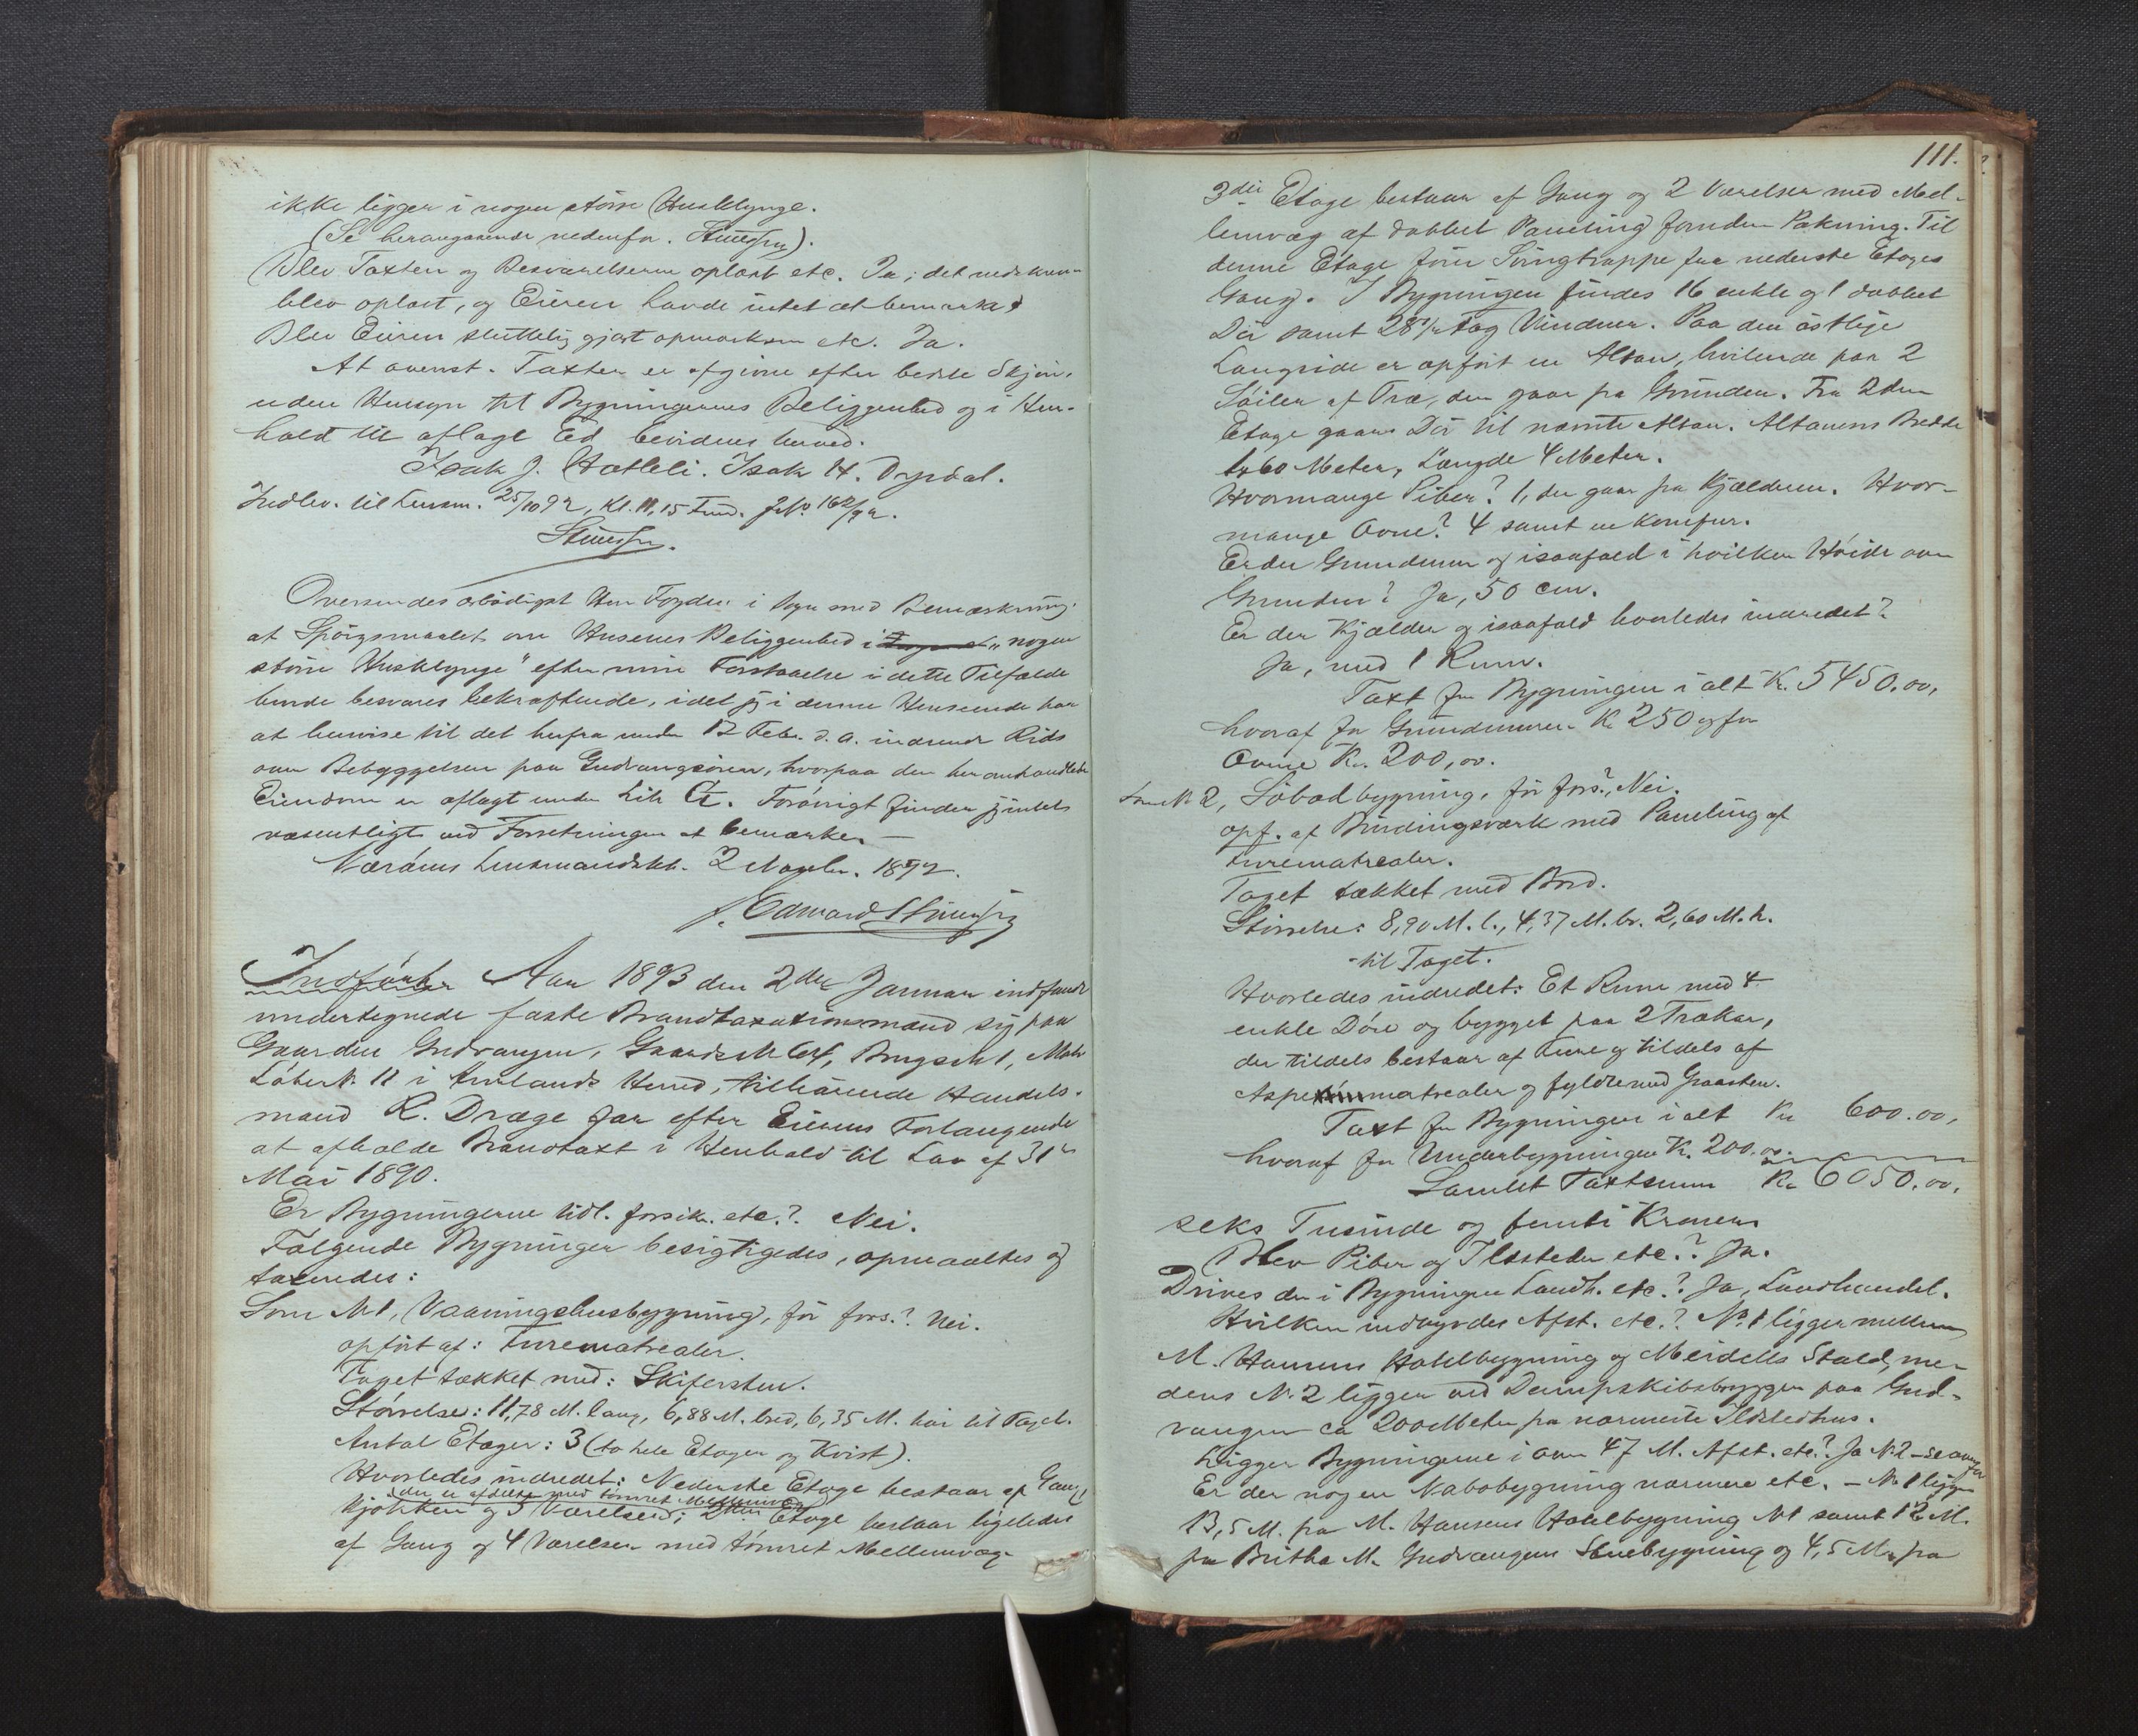 ikke ligger i nogen större Husklynge.
(Se herangaaende nedenfor.
Blev Taxten og Besvarelserne oplæst etc. Ja; det nedskrevne
blev oplæst, og Eieren havde intet at bemærke
Blev Eieren sluttelig gjort opmærksom etc. Ja.
At ovenst. Taxter er afgivne efter bedste Skjön,
uden Hensyn til Bygningernes Beliggenhed og i Hen-
hold til aflagt Ed bevidnes herved.
Isak J. Hætleli. Isak H. Dyrdal.
Indlev. til Lensm. 25/10 92, Kl. 11,15 Fmd.
Oversendes ærbödigst Herr Fogden i Sogn med Bemærkning,
at Spörgsmaalet om Husenes Beliggenhed i "nogen
större Husklynge" efter min Forstaaelse i dette Tilfælde
burde besvares bekræftende, idet jeg i denne Henseende har
at henvise til det herfra under 12 Febr. d. a. indsendte Rids
over Bebyggelsen paa Gudvangsören, hvorpaa den her omhandlede
Eiendom er aflagt under Litr. Forövrigt finder jeg intet
væsentligt ved Forretningen at bemærke. —
Næröens Lensmandskt. 2 Novbr. 1892.
Indförte Aar 1893 den 2den Januar indfandt
undertegnede faste Brandtaxationsmænd sig paa
Gaarden Gudvangen, Brugs No 1, Matr.
Löbe N. 11 i Aurlands Herred, tilhörende Handels-
mand R. Dræge for efter Eierens Forlangende
at afholde Brandtaxt i Henhold til Lov af 31te
Mai 1890.
Er Bygningerne tidl. forsikr. etc.? Nei.
Fölgende Bygninger besigtigedes, opmaaltes og
taxeredes:
Som N 1, Vaaningshusbygning, för fors.? Nei.
opfört af: Furematrealer.
Taget tækket med: Skifersten.
Störrelse: 11,78 M. lang, 6,88 M. bred, 6,35 M. höi til Taget.
Antal Etager: 3 (to hele Etager og Kvist).
Hvorledes indredet: Nederste Etage bestaar af Gang,
(der er afdelte med tömret Mellemvæg)
Kjökken og 3 Værelser; 2den Etage bestaar ligeledes
af Gang og 4 Værelser med tömret Mellemvæg.
111.
3die Etage bestaar af Gang og 2 Værelser med Mel-
lemvæg af dobbelt Paneling foruden Pakning. Til
denne Etage förer Svingtrappe fra nederste Etages
Gang. I Bygningen findes 16 enkle og 1 dobbelt
Dör samt 28 1/2 Fag Vinduer. Paa den östlige
Langside er opfört en Altan, hvilende paa 2
Söiler af Træ, der gaar fra Grunden. Fra 2den
Etage gaar Dör til nævnte Altan. Altanens Bredde
1,60 Meter, Længde 4 Meter.
Hvormange Piber? 1, der gaar fra Kjælderen. Hvor-
mange Ovne? 4 samt en Komfur.
Er der Grundmur og isaafald i hvilken Höide over
Grunden? Ja, 50 cm.
Er der Kjælder og isaafald hvorledes indredet?
Ja, med 1 Rum.
Taxt for Bygningen i alt Kr. 5450,00,
hvoraf for Grundmuren Kr 250 og for
Ovne Kr. 200,00.
Som N. 2, Söbodbygning, för fors.?, Nei.
opf. af Bindingsværk med Paneling af
Furematrealer.
Taget tækket med Bord.
Störrelse: 8,90 M. l., 4,37 M. br. 2,60 M. h.
til Taget.
Hvorledes indredet: Et Rum med 4
enkle Döre og bygget paa 2 Trækar,
der tildels bestaar af Fure og tildels af
Aspematrealer og fyldte med Graasten.
Taxt for Bygningen i alt Kr 600.00,
hvoraf for Underbygningen K. 200.00.
Samlet Taxtsum Kr 6050.00,
seks Tusinde og femti Kroner
Blev Piber og Ildsteder etc.? Ja.
Drives der i Bygningen Landh. etc.? Ja, Landhandel.
Hvilken indbyrdes Afst. etc.? No 1 ligger mellem
M. Hansens Hotelbygning og Meidells Stald, me-
dens N. 2 ligger ved Dampskibsbryggen paa Gud-
vangen ca 200 Meter fra nærmeste Ildstedhus.
Ligger Bygningerne i over 47 M. Afst. etc.? Ja N. 2 – se ovenfor
Er der nogen Nabobygning nærmere etc. – No 1 ligger
13,5 M. fra M. Hansens Hotelbygning N 1 samt 12 M.
fra Britha M. Gudvangens Stuebygning og 4,5 M. fra